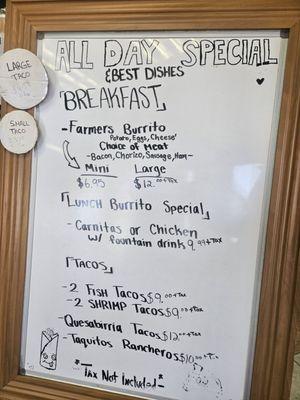 LARGE
TACO
SMALL
TACO
ALL DAY SPECIAL
& BEST DISHES
BREAKFAST
- Farmers Burrito
Potato, Eggs, Cheese
Choice of Meat
- Bacon, Chorizo, Sausage, Ham -
Mini Large
$6.95 $12.00 + Tax
LUNCH Burrito Special
- Carnitas or Chicken
w/ fountain drink 9.99 + Tax
TACOS
- 2 FISH Tacos $9.00 + Tax
- 2 SHRIMP Tacos $9.00 + Tax
- Quesabirria Tacos $12.00 + Tax
- Taquitos Rancheros $10.00 + Tx
* - Tax Not Included - *